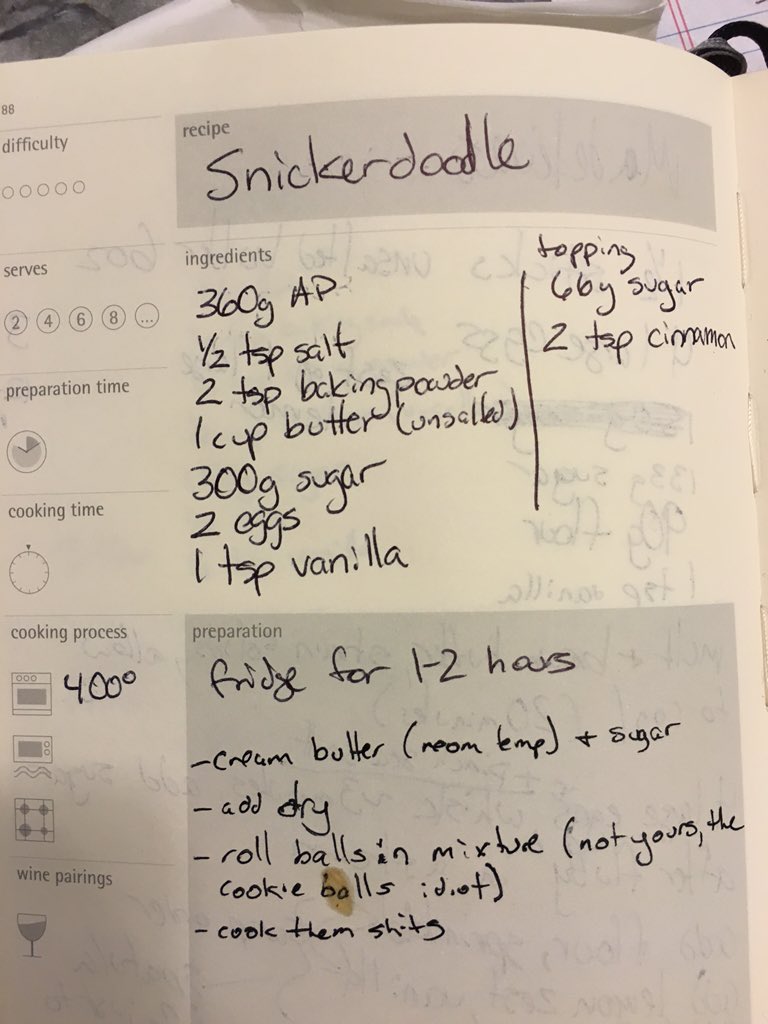 88
difficulty
recipe
Snickerdoodle
serves
2 4 6 8 ...
preparation time
cooking time
ingredients
360g AP
1/2 tsp salt
2 tsp baking powder
1 cup butter (unsalted)
300g sugar
2 eggs
1 tsp vanilla
topping
66g sugar
2 tsp cinnamon
cooking process
400°
wine pairings
preparation
fridge for 1-2 hours
-cream butter (room temp) + sugar
- add dry
- roll balls in mixture (not yours, the
cookie balls idiot)
- cook them shits